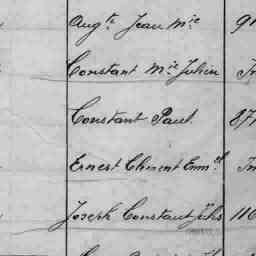 Augte Jean Mie 91
Constant Mie Julien
Constant Paul. 871
Ernest Clément Emmel
Joseph Constant Jules 116